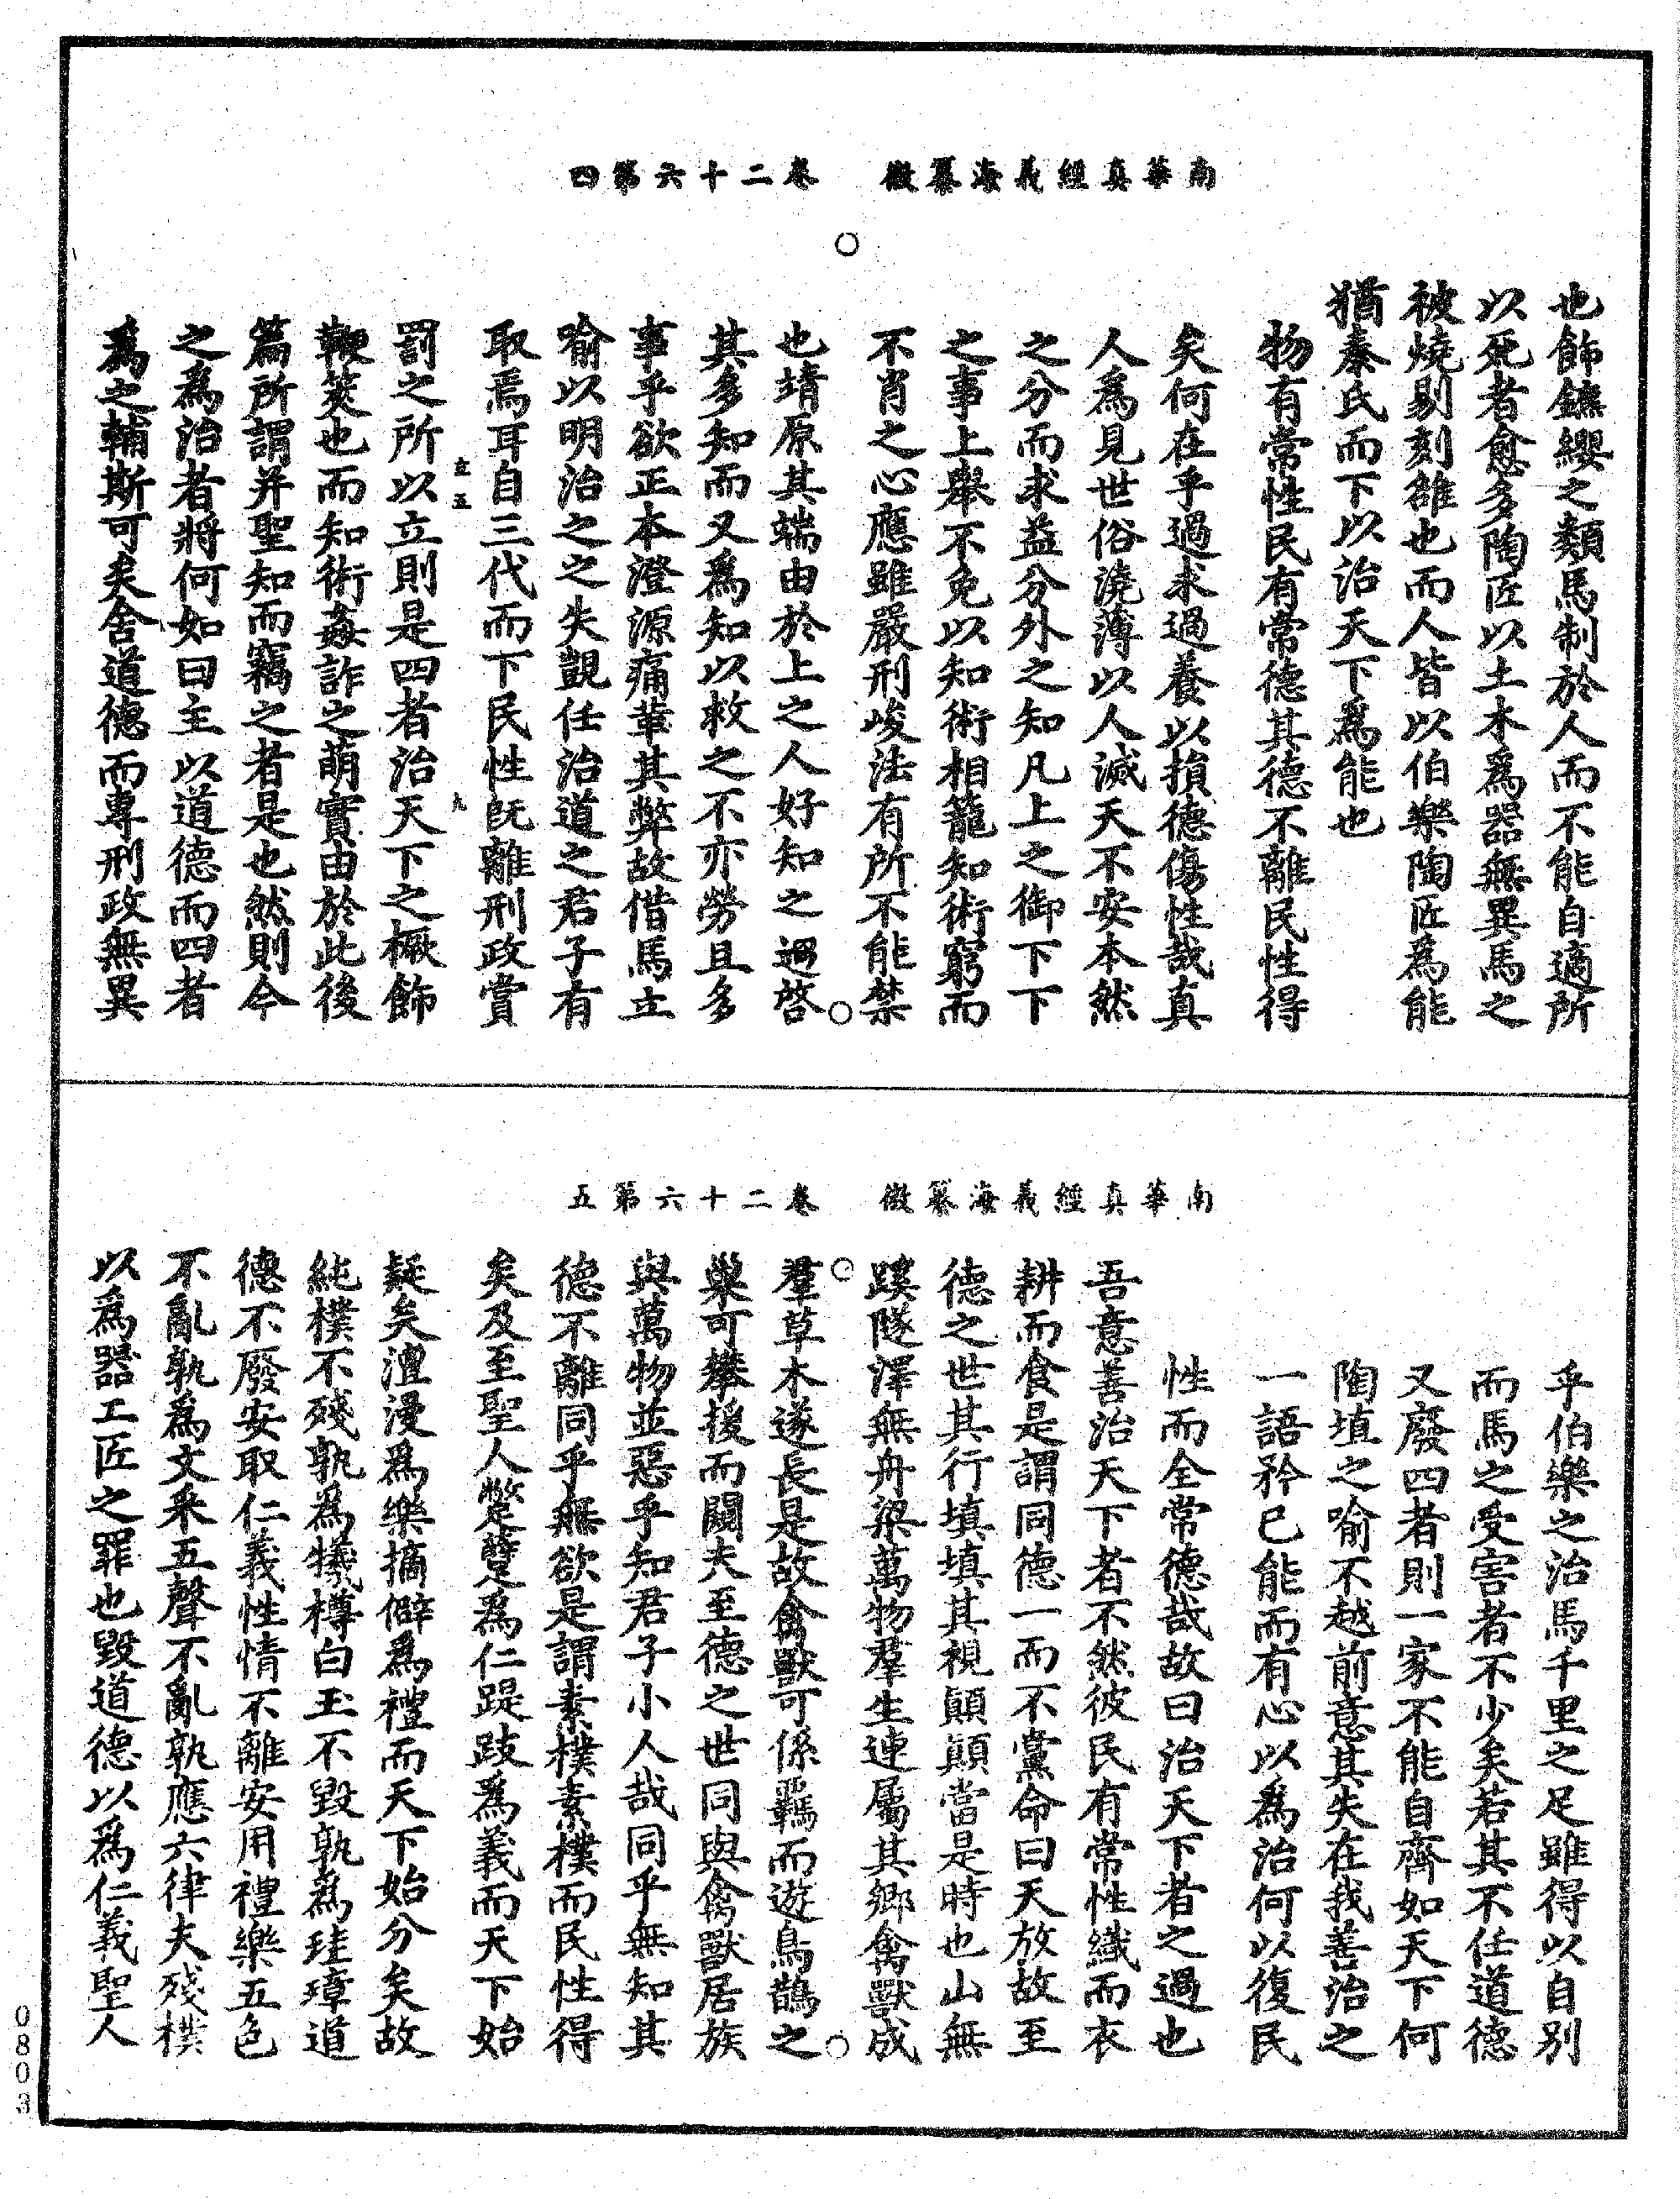 南華真經義海纂微　卷二十六第四
也飾鑣纓之類馬制於人而不能自適所
以死者愈多陶匠以土木為器無異馬之
被燒剔刻雒也而人皆以伯樂陶匠為能
猶秦氏而下以治天下為能也
物有常性民有常德其德不離民性得
矣何在乎過求過養以損德傷性哉真
人為見世俗澆薄以人滅天不安本然
之分而求益分外之知凡上之御下下
之事上舉不免以知術相籠知術窮而
不肖之心應雖嚴刑峻法有所不能禁
也靖原其端由於上之人好知之過啓
其多知而又為知以救之不亦勞且多
事乎欲正本澄源痛革其弊故借馬立
喻以明治之之失覬任治道之君子有
取焉耳自三代而下民性既離刑政賞
立五　九
罰之所以立則是四者治天下之橛飾
鞭筴也而知術姦詐之萌實由於此後
篇所謂并聖知而竊之者是也然則今
之為治者將何如曰主以道德而四者
為之輔斯可矣舍道德而專刑政無異
南華真經義海纂微　卷二十六第五
乎伯樂之治馬千里之足雖得以自別
而馬之受害者不少矣若其不任道德
又廢四者則一家不能自齊如天下何
陶埴之喻不越前意其失在我善治之
一語矜已能而有心以為治何以復民
性而全常德哉故曰治天下者之過也
吾意善治天下者不然彼民有常性織而衣
耕而食是謂同德一而不黨命曰天放故至
德之世其行填填其視顛顛當是時也山無
蹊隧澤無舟梁萬物羣生連屬其鄉禽獸成
羣草木遂長是故禽獸可係羈而遊鳥鵲之
巢可攀援而闚夫至德之世同與禽獸居族
與萬物並惡乎知君子小人哉同乎無知其
德不離同乎無欲是謂素樸素樸而民性得
矣及至聖人蹩躠為仁踶跂為義而天下始
疑矣澶漫為樂摘僻為禮而天下始分矣故
純樸不殘孰為犧樽白玉不毀孰為珪璋道
德不廢安取仁義性情不離安用禮樂五色
不亂孰為文采五聲不亂孰應六律夫殘樸
以為器工匠之罪也毀道德以為仁義聖人
0803